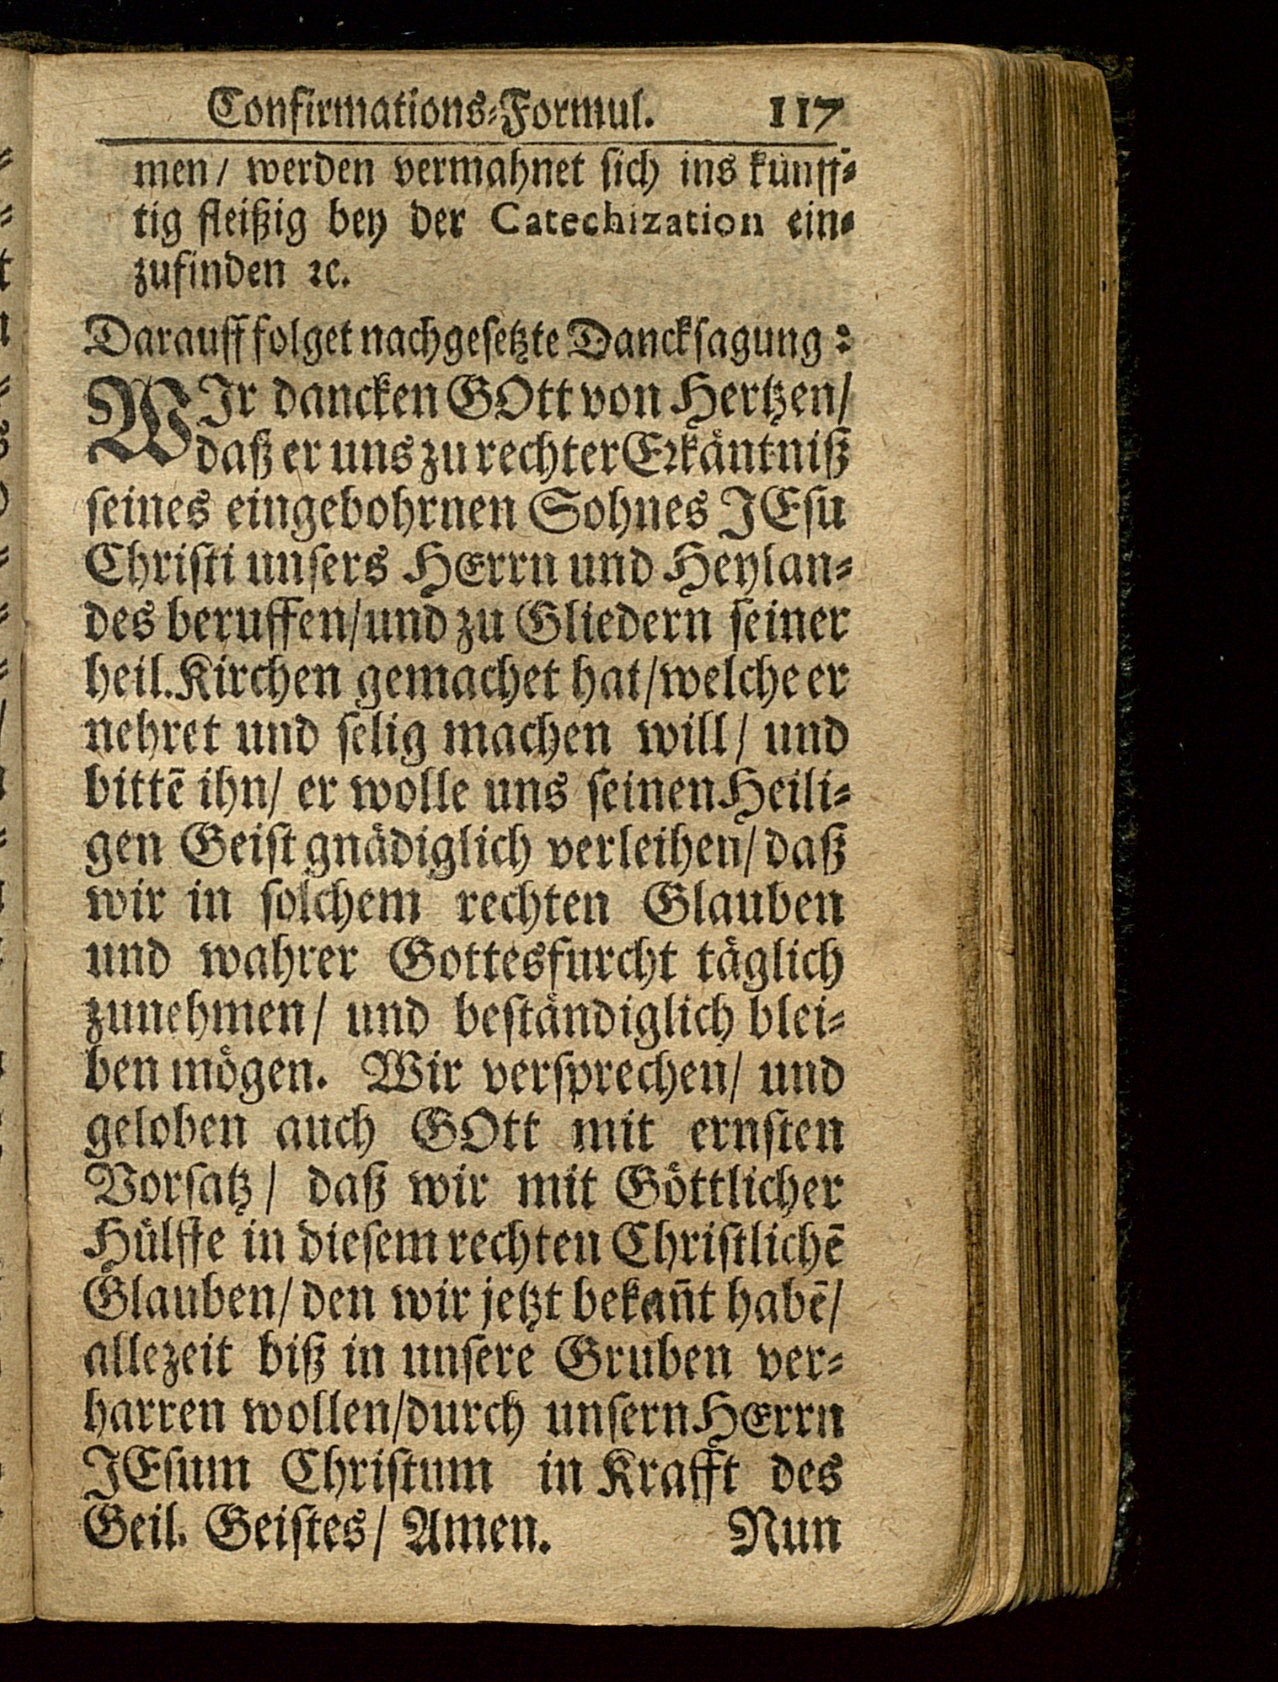 Confirmations-Formul. 117
men/ werden vermahnet sich ins künff-
tig fleißig bey der Catechization ein-
zufinden ꝛc.
Darauff folget nachgesetzte Dancksagung:
WIr dancken GOtt von Hertzen/
daß er uns zu rechter Erkäntniß
seines eingebohrnen Sohnes JEsu
Christi unsers HErrn und Heylan-
des beruffen/und zu Gliedern seiner
heil. Kirchen gemachet hat/welche er
nehret und selig machen will/ und
bittē ihn/ er wolle uns seinen Heili-
gen Geist gnädiglich verleihen/ daß
wir in solchem rechten Glauben
und wahrer Gottesfurcht täglich
zunehmen/ und beständiglich blei-
ben mögen. Wir versprechen/ und
geloben auch GOtt mit ernsten
Vorsatz/ daß wir mit Göttlicher
Hülffe in diesem rechten Christlichē
Glauben/ den wir jetzt bekan̄t habē/
allezeit biß in unsere Gruben ver-
harren wollen/durch unsern HErrn
JEsum Christum in Krafft des
Geil. Geistes/ Amen. Nun